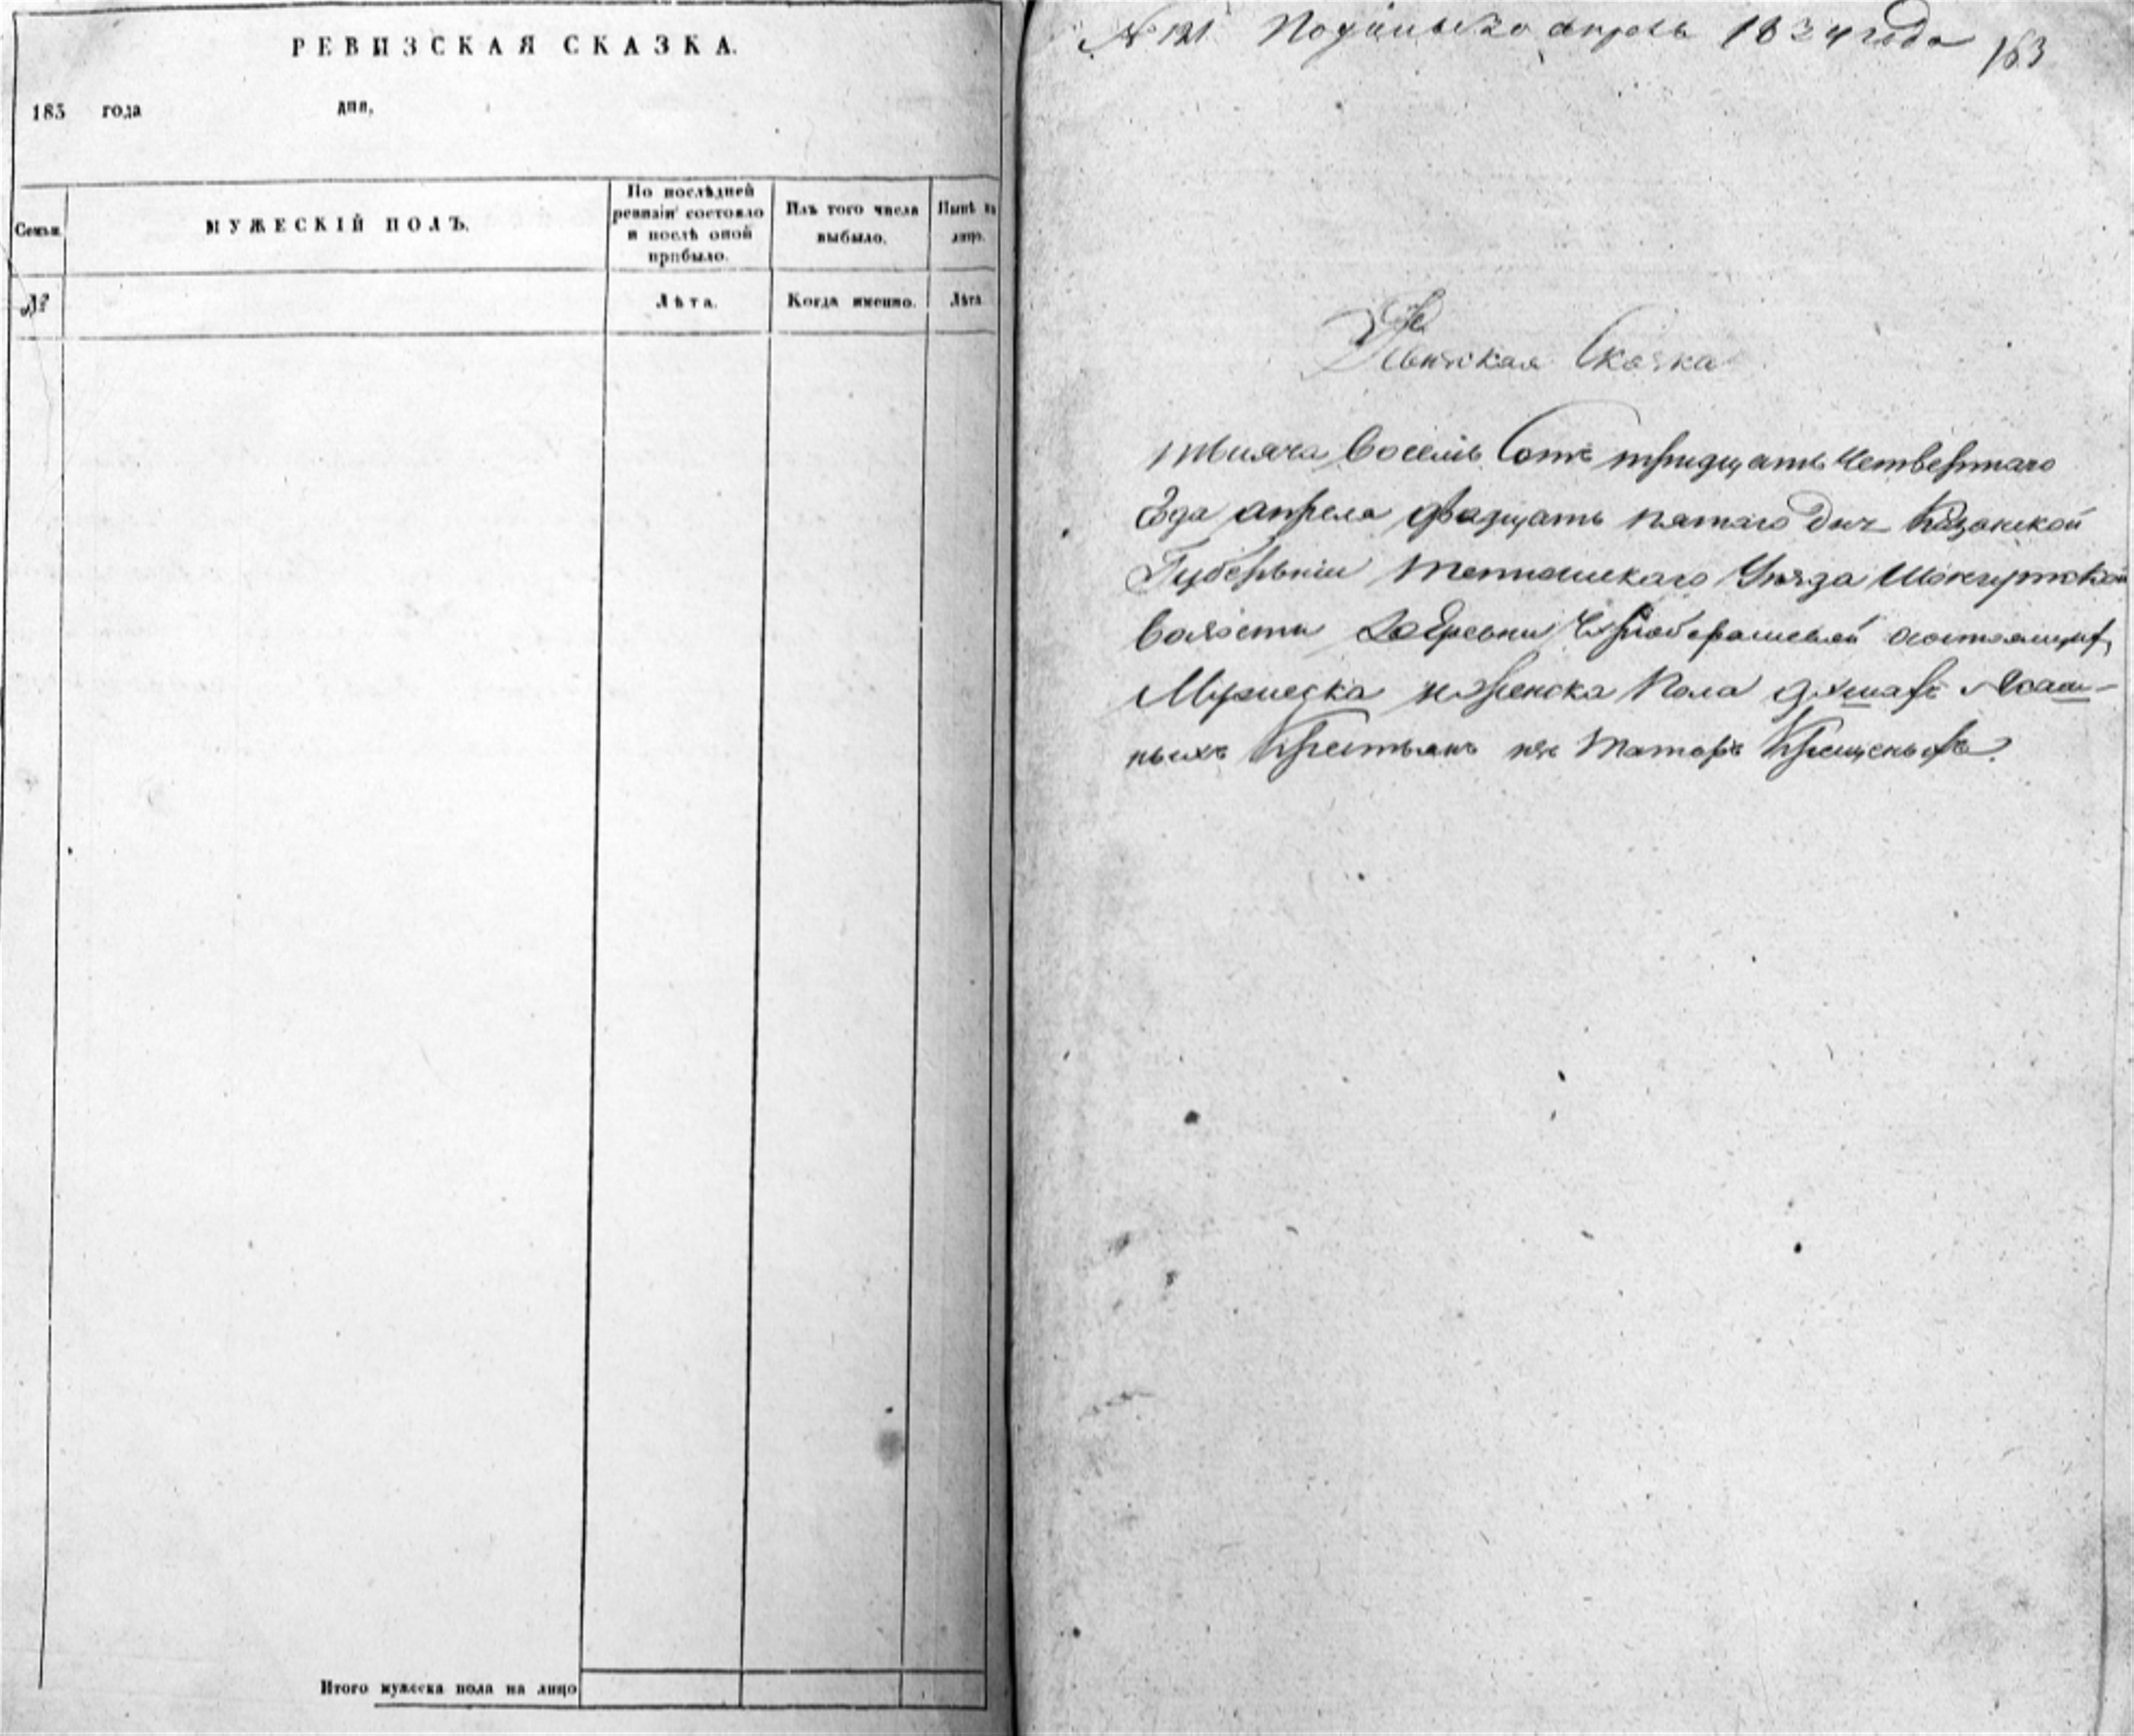 РЕВИЗСКАЯ СКАЗКА.
183 года дня,
Семьи.
МУЖЕСКІЙ ПОЛЪ.
По послѣдней
ревизіи состояло
и послѣ оной
прибыло.
Изъ того числа
выбыло.
Нынѣ на
лицо.
№
Лѣта.
Когда именно.
Лѣта
Итого мужеска пола на лицо
№ 121 апрель 1834 года 163
Ревизская Сказка
тысяча восемь сотъ тридцать четвертаго
года апреля двадцать пятаго дня Казанской
Губерьніи Тетюшскаго Уезда
Волости деревни состоящих
Мужеска и Женска Пола душах Ясаш-
ныхъ Крестьянъ изъ Татаръ Крещеныхъ.